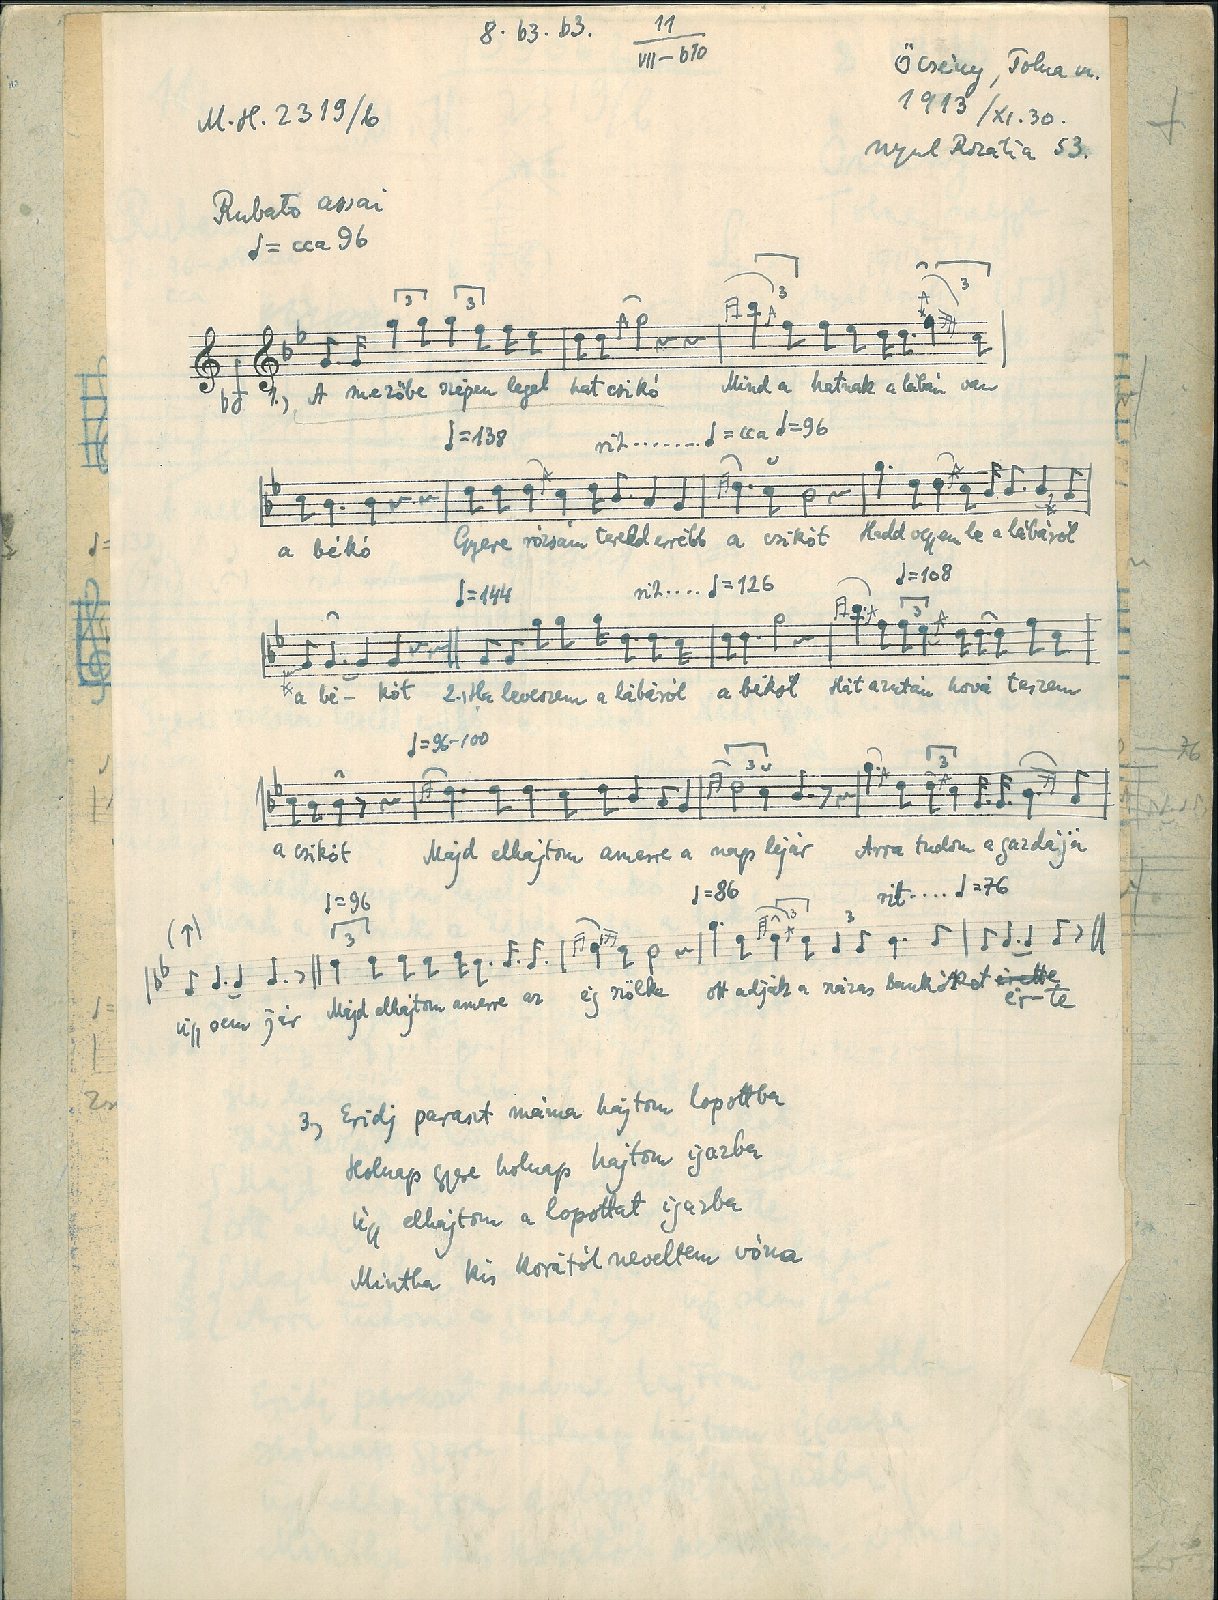 8. b3. b3. 11
VII–b10
Őcsény, Tolna m.
1913/XI.30.
M.H. 2319/b
Nyul Rozália 53.
Rubato assai
♩= cca 96
3 3 3 3
1., A mezőbe szépen legel hat csikó Mind a hatnak a lábán van
♩=138 rit........♩=cca ♩=96
a békó Gyere rózsám tereld errébb a csikót Hadd vegyem le a lábáról
♩=144 rit.... ♩=126 ♩=108
3
a bé– kót 2., Ha leveszem a lábáról a békót Hát azután hová teszem
♩=96–100
3 3
a csikót Majd elhajtom amerre a nap lejár Arra tudom a gazdája
(↑) ♩=96 ♩=86 rit.... ♩=76
3 3 3
úgy sem jár Majd elhajtom amerre az ég szölke ott adják a százas bankókot érette
ér–te
3, Eridj paraszt máma hajtom lopottba
Holnap gyere holnap hajtom igazba
Úgy elhajtom a lopottat igazba
Mintha kis korától neveltem vóna
76